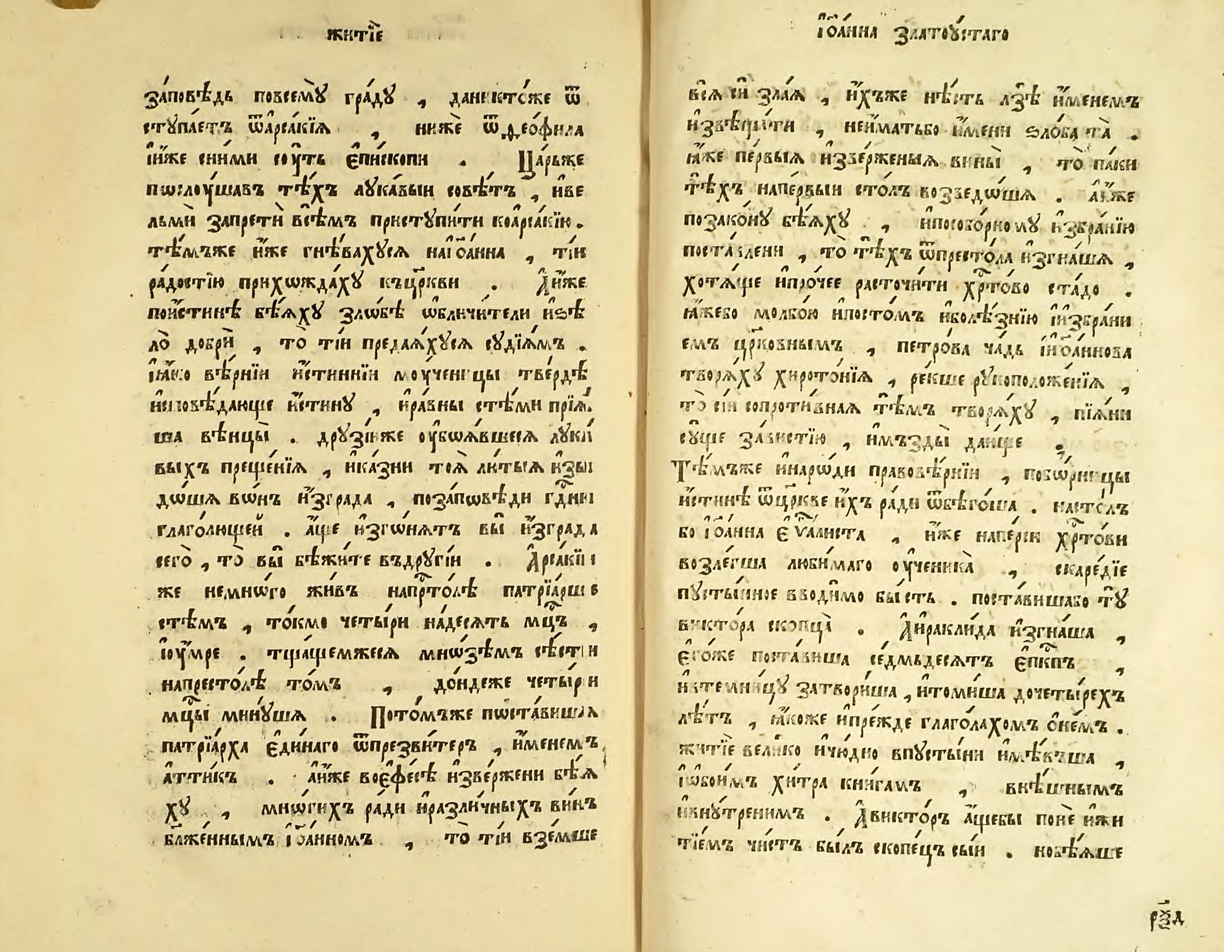 житїе
за́повѣдь повсемꙋ̀ гра́дꙋ , даникто́же ѿ
стꙋпаетъ ѿарса́кїѧ , нижѐ ѿѳео́фила
ии́же сни́ми соу́ть є҆пи́скопи . Ца́рьже
пѡслоу́шавъ тѣ́хъ лꙋка́выи совѣ́тъ , иве
льмѝ запретѝ всѣ́мъ пристꙋпи́ти коарса́кїю .
тѣ́мъже и҆́же гнѣ́вахꙋсѧ наїѡа́нна , ті́и
ра́достїю прихѡжда́хꙋ къцр҃кви . А҆и҆́же
пои́стинѣ бѣ́ѧхꙋ ѕло́бѣ ѡ҆бличи́тели иѕѣ
лѡ̀ добрѝ , то̀ ті́и преда́ѧхꙋсѧ сꙋдїѧ́мъ .
ꙗ҆́ко вѣ́рнїи и҆́стиннїи моу́ченицы тве́рдѣ
исповѣ́дающе и҆́стинꙋ , ира́вны стѣ́ми прїѧ́
ша вѣнцы̀ . дрꙋзі́иже оу҆боѧ́вшесѧ лꙋка́
выхъ преще́нїѧ , ика́зни тоѧ̀ лю́тыѧ изы
до́шѧ во́нъ изгра́да , позапѡвѣди гдⷭ҇ни
глаго́лющей . а҆́ще и҆зго́нѧтъ вы̀ и҆згра́да
сего̀ , то̀ вы̀ бѣжи́те въдрꙋгі́и . А҆рса́кїи
же немно́го жи́въ напрⷭ҇то́лѣ патрїа́рше
стѣмъ , то́кмо четы́ри на́десѧть мц҃ъ ,
їоу́мре . тща́щемжесѧ мнѡ́зѣмъ сѣ́сти
напресто́лѣ то́мъ , до́ндеже четы́ри
мц҃ы минꙋ́шѧ . Пото́мъже поста́вишѧ
патрїа́рха є҆ди́наго ѿпрезви́теръ , и҆́менемъ
а҆́ттикъ . аи҆́же воєфе́сѣ и҆зве́ржени бѣ́ѧ
хꙋ , мно́гихъ ра́ди ира́зличныхъ ви́нъ
блаже́ннымъ і҆ѡа́нномъ , то̀ ті́и взе́мше
і҆ѡа́нна златоꙋ́стаго
всѧ̀ сѝ зла́ѧ , и҆́хъже нѣ́сть лзѣ̀ и҆́менемъ
извѣсти́ти , неи́матьбо и҆́мени ѕло́ба та̀ .
ꙗ҆́же пе́рвыѧ и҆зве́рженыѧ вины̀ , то̀ па́ки
тѣ́хъ напе́рвыи сто́лъ возведо́шѧ . аи҆́же
позако́нꙋ бѣ́ѧхꙋ , ипособо́рномꙋ и҆збра́нїю
поста́влени , то̀ тѣ́хъ ѿпресто́ла и҆згна́шѧ ,
хотѧ́ще ипро́чее расточи́ти хрⷭ҇то́во ста́до .
ꙗ҆́жебо молбо́ю ипосто́мъ иболѣ́знїю иизбра́ни
емъ црⷪ҇ко́внымъ , петро́ва ча́дь иїѡа́ннова
творѧ́хꙋ хирото́нїѧ , ре́кше рꙋкоположе́нїѧ ,
то̀ сі́и сопроти́внаѧ тѣ́мъ творѧ́хꙋ , пїѧ́ни
сꙋ́ще за́вистїю , имъзды̀ даю́ще .
Тѣ́мъже инаро́ди правовѣ́рнїи , побо́рницы
и҆́стинѣ ѿцр҃кве и҆́хъ ра́ди ѿбѣго́ша . насто́лъ
бо і҆ѡа́нна є҆ѵⷢ҇али́ста , и҆́же напе́рси хрⷭ҇то́ви
возле́гша люби́маго оу҆ченика̀ , скаре́дїе
пꙋсты́нное вводи́мо бы́сть . поста́вишабо тꙋ̀
ви́ктора скопца̀ . А҆ира́клида и҆згна́ша ,
є҆го́же поста́виша се́дмьдесѧтъ є҆пⷭ҇кпъ ,
ивтемни́цꙋ затвори́ша , ито́миша дочеты́рехъ
лѣ́тъ , ꙗ҆́коже ипре́жде глаго́лахомъ ѻ҆не́мъ .
житїѐ вели́ко ичю́дно впꙋсты́ни имѣ́вша ,
їѡ҆бои́мъ хи́тра кни́гамъ , внѣ́шнымъ
ивнꙋ́тренимъ . А҆ви́кторъ а҆́щебы понѐ ижи
тїе́мъ чи́стъ бы́лъ скопе́цъ сы́и . новѣ́ѧше
рѯ҃д